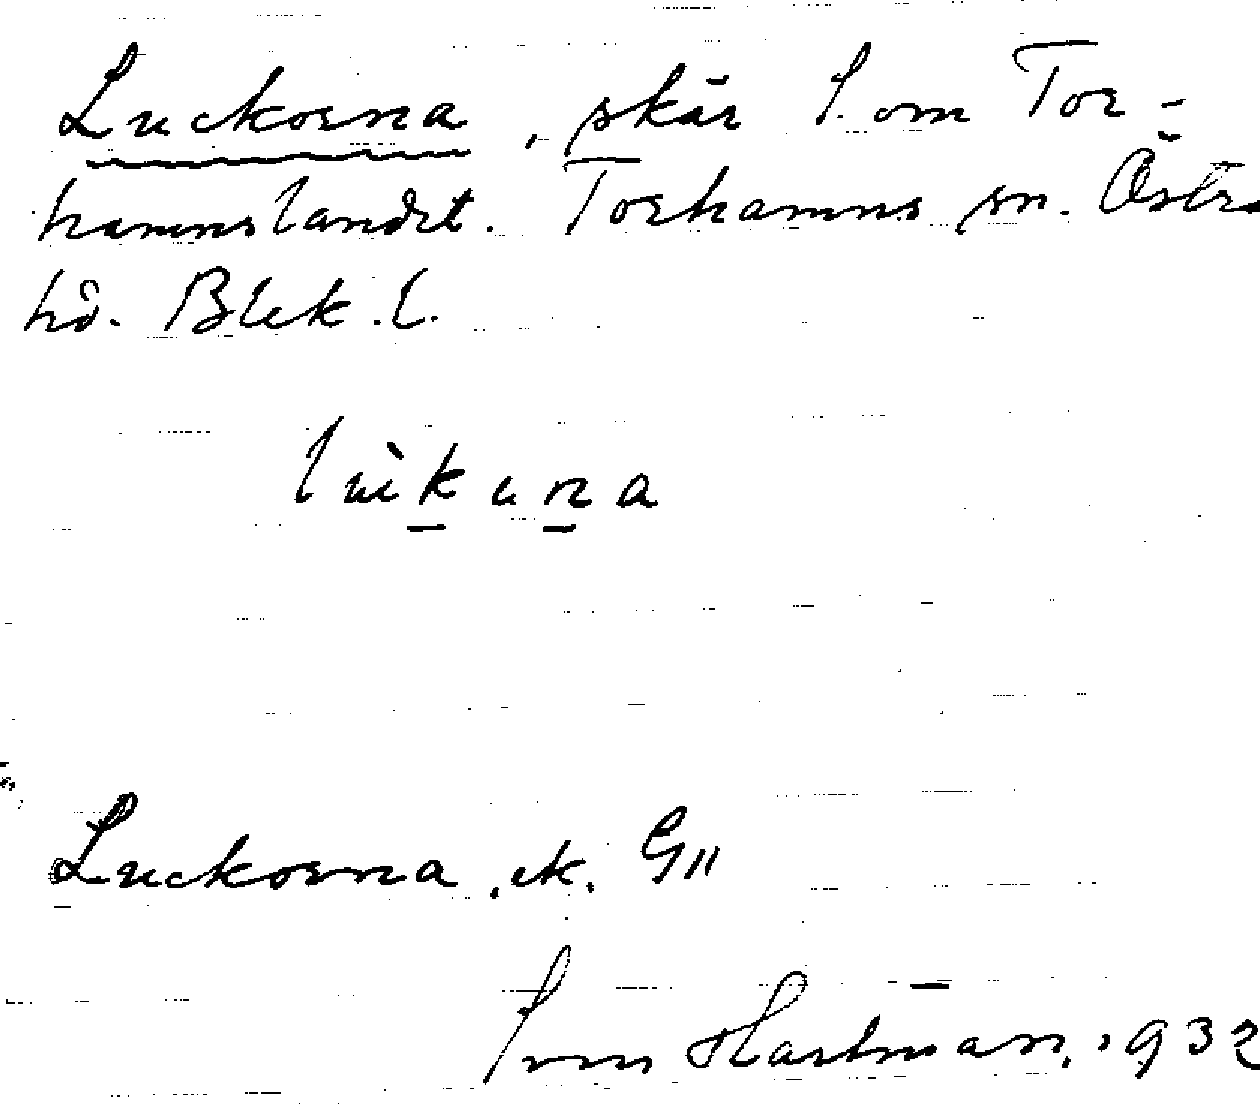 Luckorna, skär S. om Tor-
hamnslandet. Torhamns sn. Östra
hd. Blek. l.
Luckorna, ek. G11
Hartman, 1932